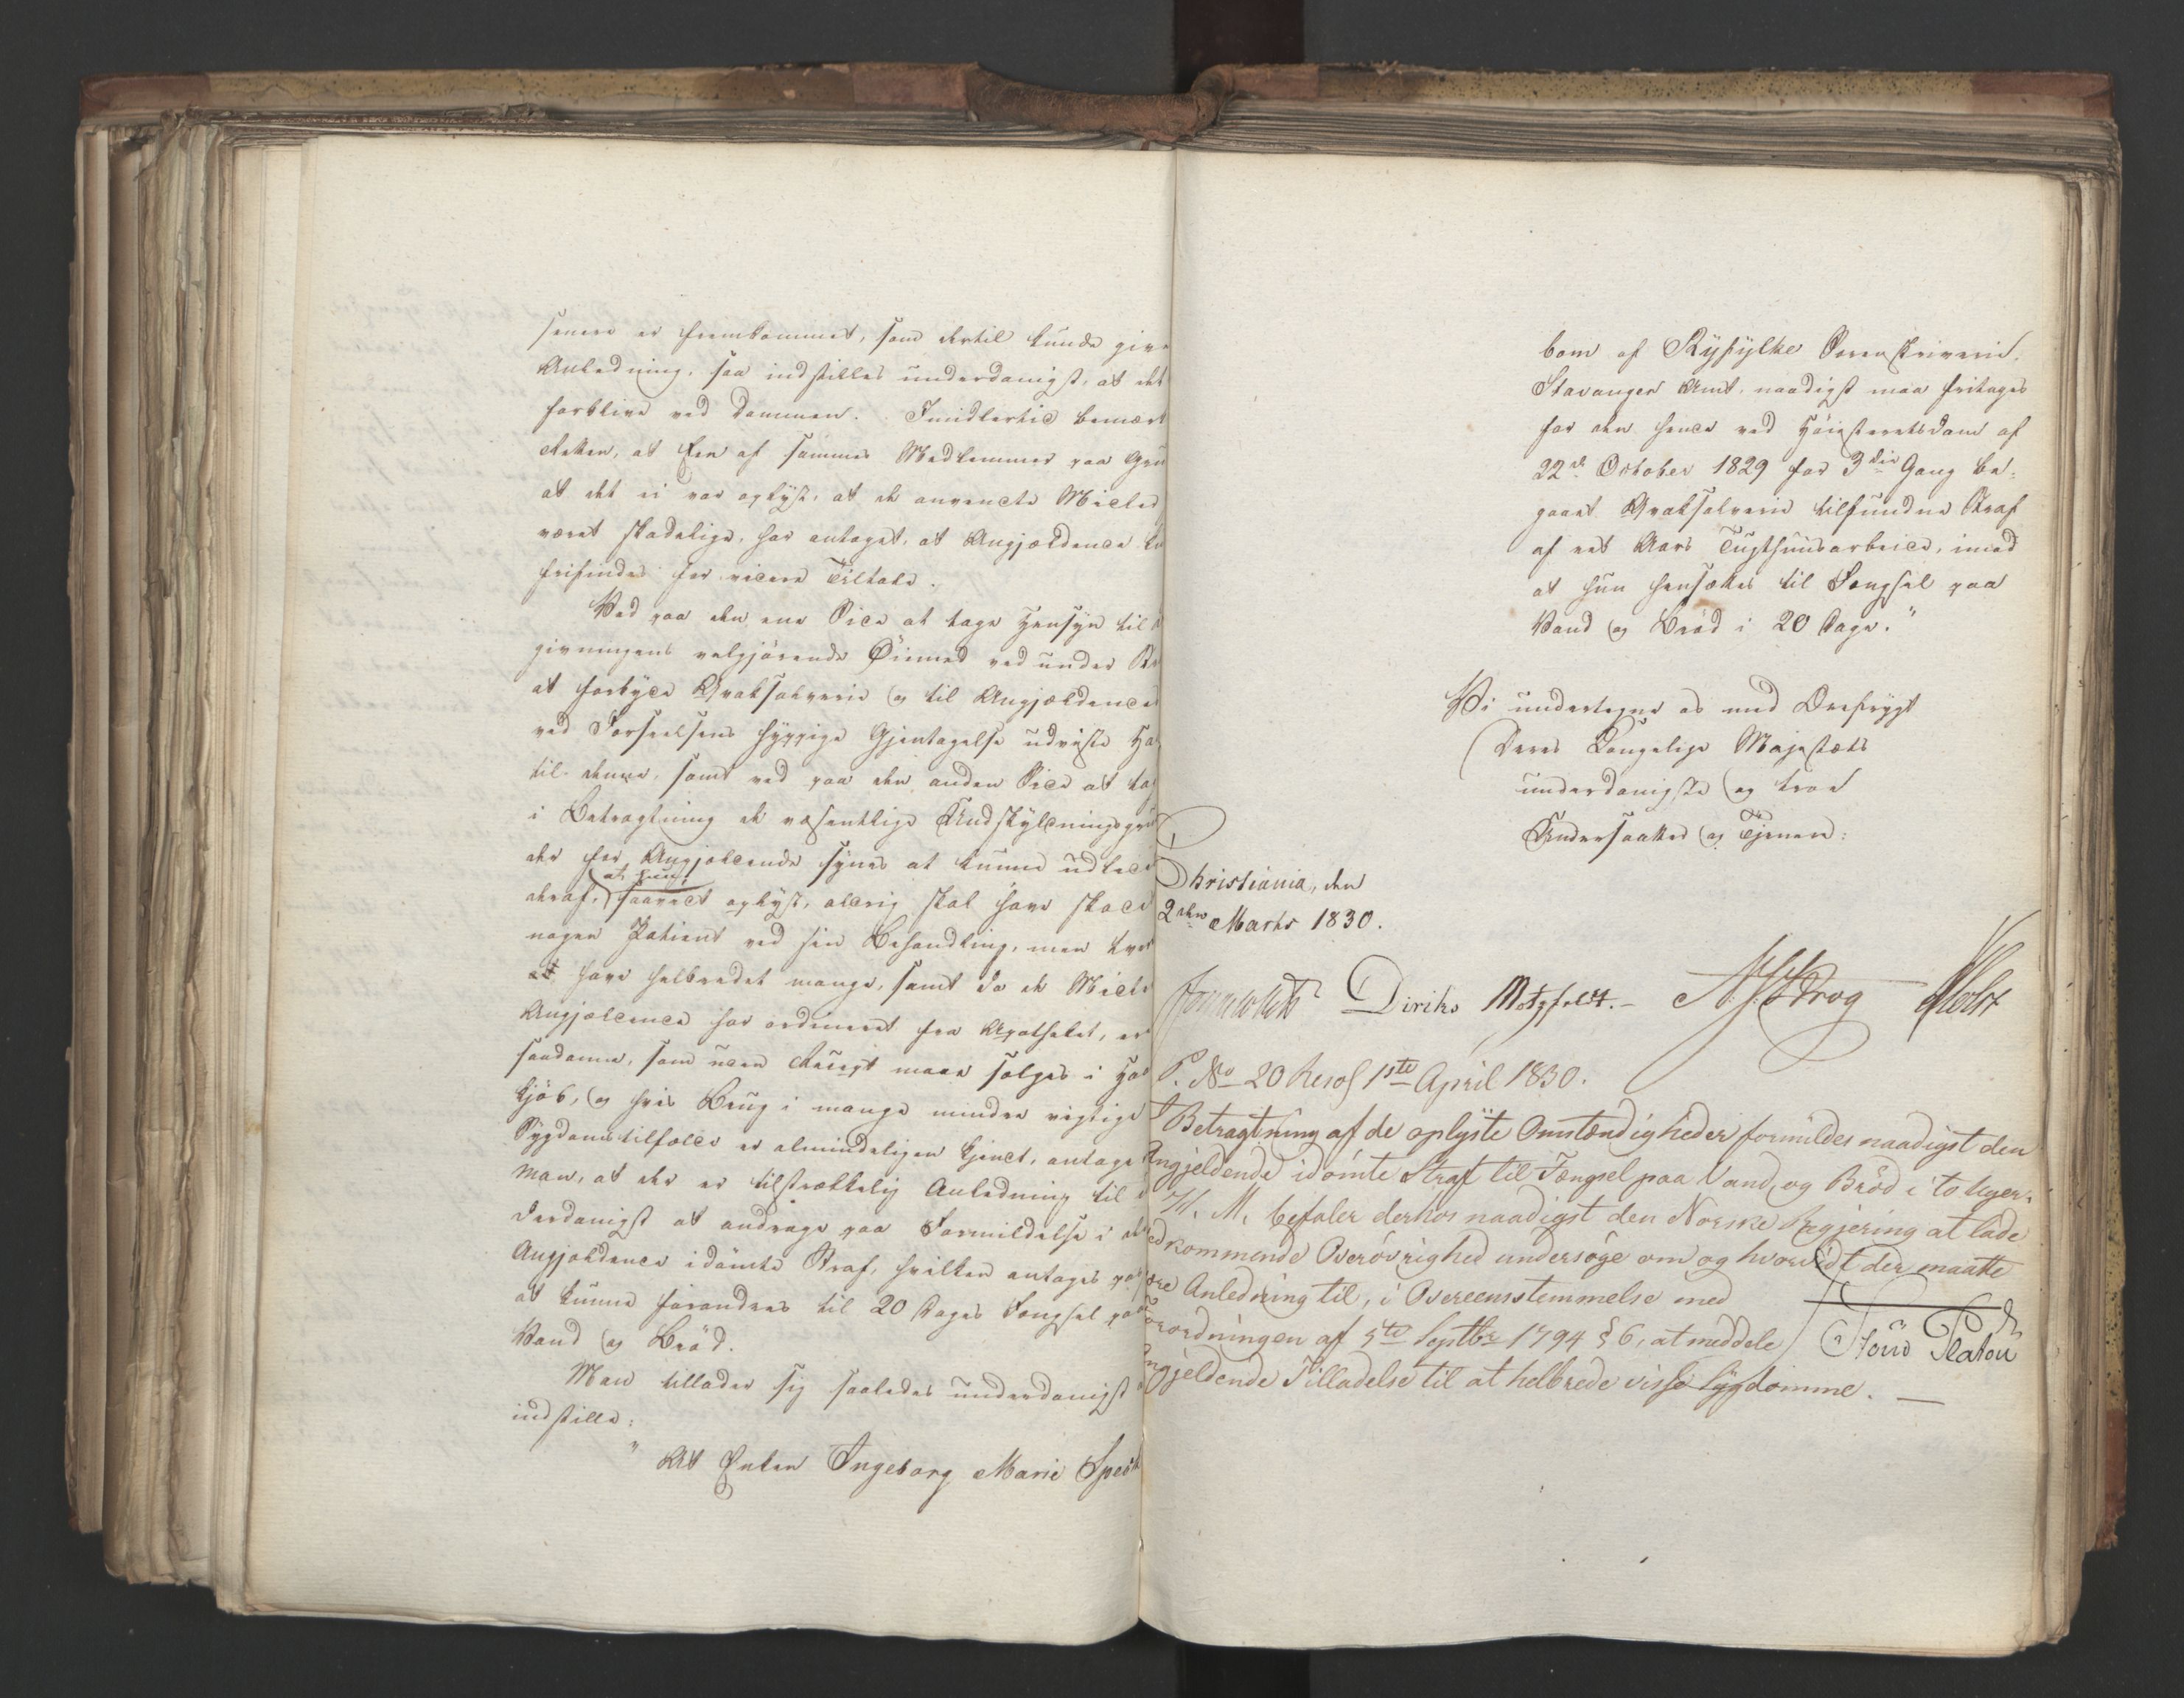 senere er fremkommet, som dertil kunde give
Anledning, saa indstilles underdanigst, at det
forblive ved Dommen. Imidlertid bemærk
Retten, at Een af sammes Medlemmer paa Gru
at det ei var oplyst, at de anvendte Midler
været skadelige, har antaget, at Angjældende
frifindes for videre Tiltale.
Ved paa den ene Side at tage Hensyn til
givningens velgjörende Öiemed ved under
at forbyde Qvaksalverie og til Angjældendes
ved Forseelsens hyppige Gjentagelse udviste
til denne, samt ved paa den anden Side at tag
i Betragtning de væsentlige Undskyldningsgru
der for Angjældende synes at kunne udlede
deraf, at hun,
saavidt oplyst, aldrig skal have skadet
nogen Patient ved sin Behandling, men tver
at have helbredet mange, samt da de Midle
Angjældende har ordineret fra Apotheket, er
saadanne, som uden Recept maae sælges i Ha
kjöb, og hvis Brug i mange mindre vigtige
Sygdomstilfælde er almindeligen kjendt, antage
man, at der er tilstrækkelig Anledning til
derdanigst at andrage paa Formildelse i den
Angjældende idömte Straf, hvilken antages
at kunne forandres til 20 Dages Fængsel paa
Vand og Bröd.
Man tillader sig saaledes underdanigst
indstille:
"At Enken Ingeborg Marie Speck
bom af Ryfylke Sorenskriverie,
Stavanger Amt, naadigst maa fritages
for den hende ved Höiesteretsdom af
22de October 1829 for 3die Gang be-
gaaet Qvaksalverie tilfundne Straf
af eet Aars Tugthuusarbeide, imod
at hun hensættes til Fængsel paa
Vand og Bröd i 20 Dage."
Vi undertegne os med Ærefrygt
Deres Kongelige Majestæts
underdanigste og troe
Undersaatter og Tjenere:
Christiania, den
2den Marts 1830.
Diriks Motzfeldt. Krog Holst
P. No 20 Resol 1ste April 1830.
I Betragtning af de oplyste Omstændigheder formildes naadigst den
Angjeldende idömte Straf til Fængsel paa Vand og Bröd i to Uger.
H. M. befaler derhos naadigst den Norske Regjering at lade
vedkommende Överövrighed undersöge om og hvorvidt der maatte
være Anledning til, i Overeensstemmelse med
Forordningen af 5te Septbr 1794 § 6, at meddele
Angjeldende Tilladelse til at helbrede visse Sygdomme. —
Platou